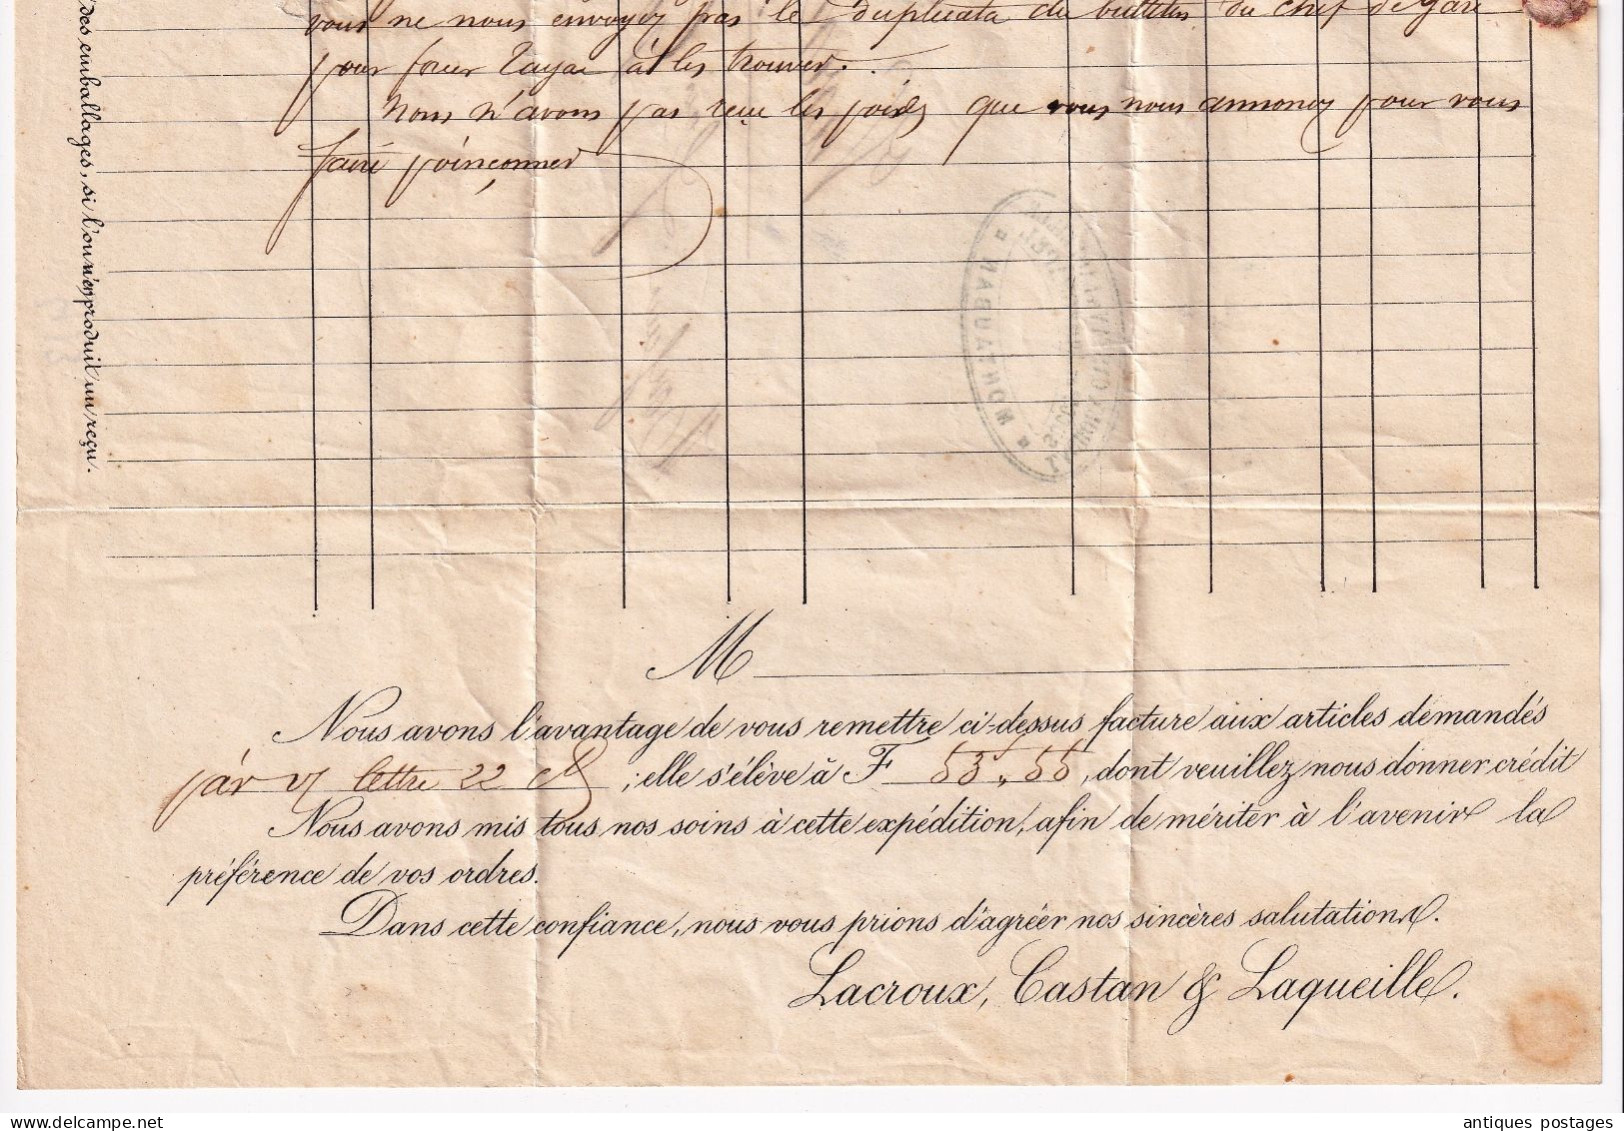 vous ne nous envoyez pas le duplicata du bulletin du chef de gare
pour forcer à les trouver.
Nous n'avons pas reçu les poids que vous nous annoncez pour vous
faire poinçonner
des emballages, si l'on n'en produit un reçu.
MONTAUBAN
M
Nous avons l'avantage de vous remettre ci-dessus facture aux articles demandés
par v/ lettre 22 ct ; elle s'élève à F 53,55, dont veuillez nous donner crédit
Nous avons mis tous nos soins à cette expédition, afin de mériter à l'avenir la
préférence de vos ordres.
Dans cette confiance, nous vous prions d'agréer nos sincères salutations.
Lacroux, Castan & Laqueille.
antiques postages